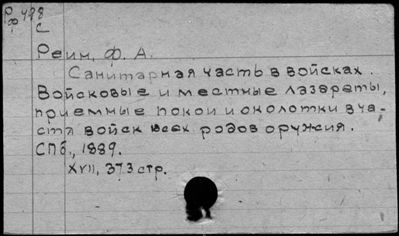 Р 488
С
Реин, Ф. А.
Санитарная часть в войсках.
Войсковые и местные лазареты,
приемные покои и околотки в ча-
стях войск всех родов оружия.
СПб., 1889.
XVII, 373 стр.